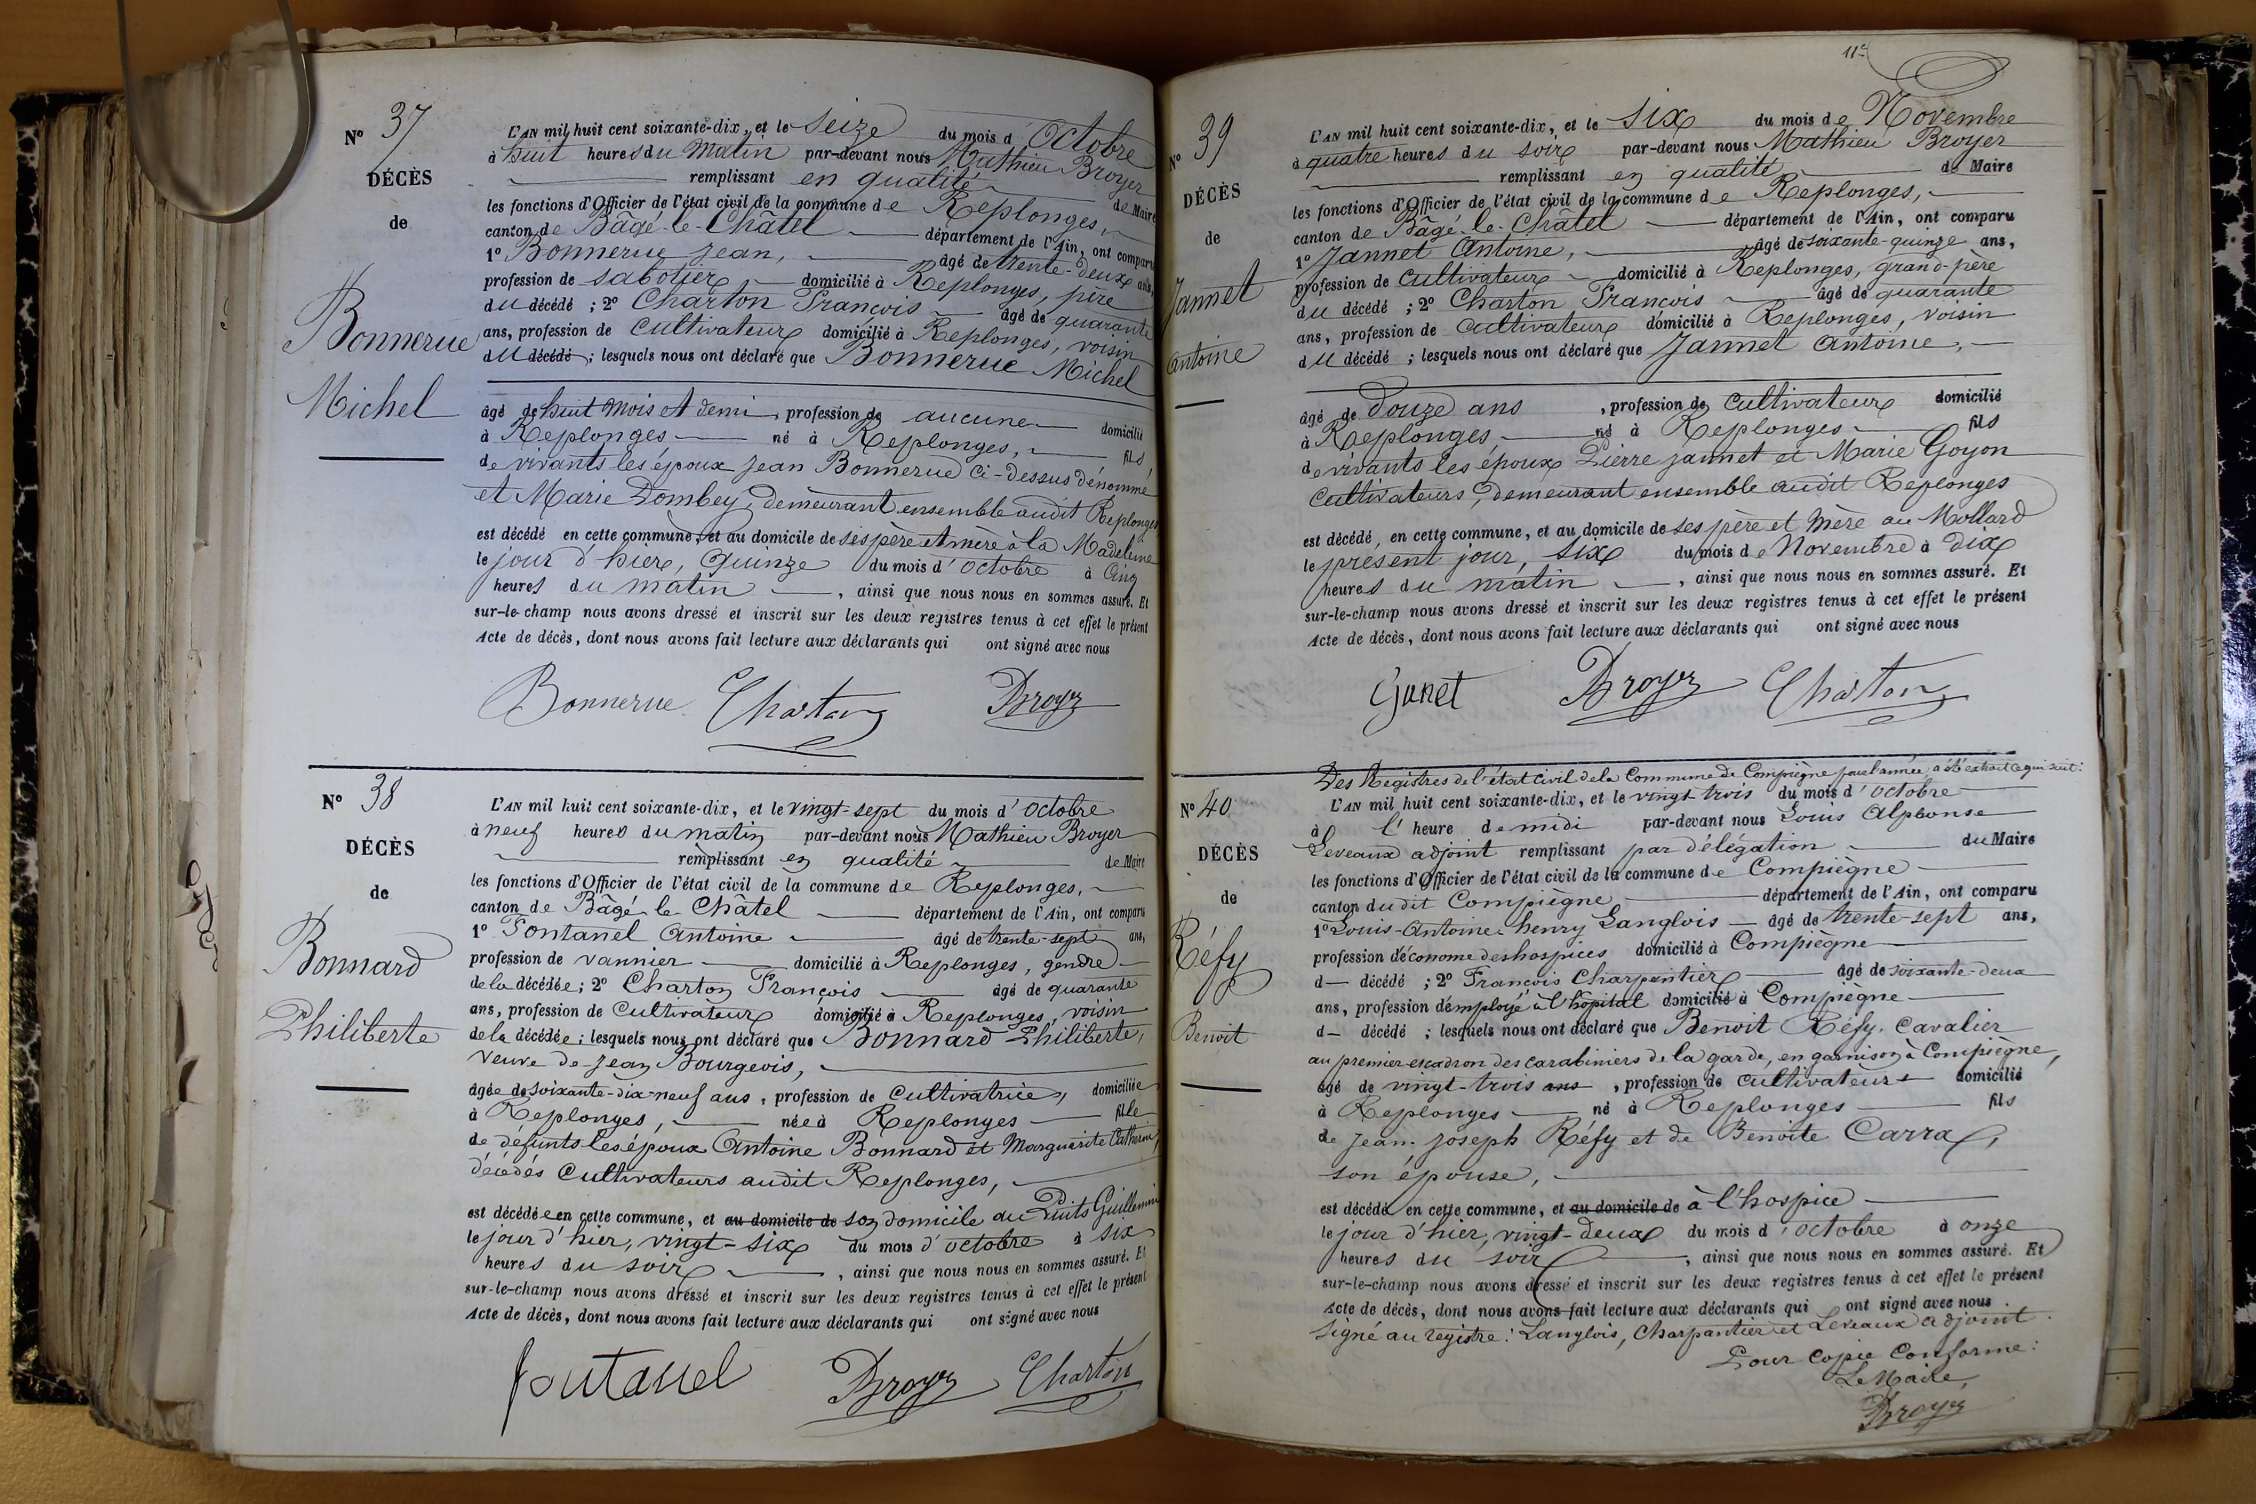 N° 37
DÉCÈS
de
Bonnerue
Michel
L'AN mil huit cent soixante-dix, et le seize du mois d'Octobre
à huit heures du matin par-devant nous Mathieu Broyer
remplissant en qualité de Maire
les fonctions d'Officier de l'état civil de la commune de Replonges,
canton de Bâgé-le-Châtel département de l'Ain, ont comparu
1° Bonnerue Jean, âgé de trente-deux ans,
profession de sabotier domicilié à Replonges, père
du décédé ; 2° Charton François âgé de quarante
ans, profession de cultivateur domicilié à Replonges, voisin
du décédé ; lesquels nous ont déclaré que Bonnerue Michel
âgé de huit mois et demi, profession de aucune domicilié
à Replonges né à Replonges, fils
de vivants les époux Jean Bonnerue ci-dessus dénommé
et Marie Dombey, demeurant ensemble audit Replonges
est décédé en cette commune, et au domicile de ses père et mère à la Madeleine
le jour d'hier, quinze du mois d'octobre à cinq
heures du matin, ainsi que nous nous en sommes assuré. Et
sur-le-champ nous avons dressé et inscrit sur les deux registres tenus à cet effet le présent
Acte de décès, dont nous avons fait lecture aux déclarants qui ont signé avec nous
Bonnerue Charton Broyer
N° 38
DÉCÈS
de
Bonnard
Philiberte
L'AN mil huit cent soixante-dix, et le vingt-sept du mois d'octobre
à neuf heures du matin par-devant nous Mathieu Broyer
remplissant en qualité de Maire
les fonctions d'Officier de l'état civil de la commune de Replonges,
canton de Bâgé-le-Châtel département de l'Ain, ont comparu
1° Fontanel Antoine âgé de trente-sept ans,
profession de vannier domicilié à Replonges, gendre
de la décédée ; 2° Charton François âgé de quarante
ans, profession de cultivateur domicilié à Replonges, voisin
de la décédée ; lesquels nous ont déclaré que Bonnard Philiberte,
veuve de Jean Bourgeois,
âgée de soixante-dix-neuf ans, profession de cultivatrice, domiciliée
à Replonges, née à Replonges fille
de défunts les époux Antoine Bonnard et Marguerite Catherin,
décédés cultivateurs audit Replonges,
est décédée en cette commune, et au domicile de son domicile au Puits Guillemin
le jour d'hier, vingt-six du mois d'octobre à six
heures du soir, ainsi que nous nous en sommes assuré. Et
sur-le-champ nous avons dressé et inscrit sur les deux registres tenus à cet effet le présent
Acte de décès, dont nous avons fait lecture aux déclarants qui ont signé avec nous
fontanel Broyer Charton
11e
N° 39
DÉCÈS
de
Jannet
Antoine
L'AN mil huit cent soixante-dix, et le six du mois de Novembre
à quatre heures du soir par-devant nous Mathieu Broyer
remplissant en qualité de Maire
les fonctions d'Officier de l'état civil de la commune de Replonges,
canton de Bâgé-le-Châtel département de l'Ain, ont comparu
1° Jannet Antoine, âgé de soixante-quinze ans,
profession de cultivateur domicilié à Replonges, grand-père
du décédé ; 2° Charton François âgé de quarante
ans, profession de cultivateur domicilié à Replonges, voisin
du décédé ; lesquels nous ont déclaré que Jannet Antoine,
âgé de douze ans, profession de cultivateur domicilié
à Replonges né à Replonges fils
de vivants les époux Pierre Jannet et Marie Goyon
cultivateurs, demeurant ensemble audit Replonges
est décédé, en cette commune, et au domicile de ses père et mère au Mollard
le présent jour, six du mois de Novembre à dix
heures du matin, ainsi que nous nous en sommes assuré. Et
sur-le-champ nous avons dressé et inscrit sur les deux registres tenus à cet effet le présent
Acte de décès, dont nous avons fait lecture aux déclarants qui ont signé avec nous
Ganet Broyer Charton
Des Registres de l'état civil de la Commune de Compiègne pour l'année, a été extrait ce qui suit :
N° 40
DÉCÈS
de
Réfy
Benoit
L'AN mil huit cent soixante-dix, et le vingt-trois du mois d'octobre
à l'heure de midi par-devant nous Louis Alphonse
Leveaux adjoint remplissant par délégation du Maire
les fonctions d'Officier de l'état civil de la commune de Compiègne
canton dudit Compiègne département de l'Ain, ont comparu
1° Louis-Antoine-henry Langlois âgé de trente-sept ans,
profession d'économe des hospices domicilié à Compiègne
d— décédé ; 2° François Charpentier âgé de soixante-deux
ans, profession d'employé à l'hôpital domicilié à Compiègne
d— décédé ; lesquels nous ont déclaré que Benoit Réfy, cavalier
au premier escadron des carabiniers de la garde, en garnison à Compiègne,
âgé de vingt-trois ans, profession de cultivateur domicilié
à Replonges né à Replonges fils
de Jean-Joseph Réfy et de Benoite Carra,
son épouse,
est décédé en cette commune, et au domicile de à l'hospice
le jour d'hier, vingt-deux du mois d'octobre à onze
heures du soir, ainsi que nous nous en sommes assuré. Et
sur-le-champ nous avons dressé et inscrit sur les deux registres tenus à cet effet le présent
Acte de décès, dont nous avons fait lecture aux déclarants qui ont signé avec nous.
Signé au registre : Langlois, Charpantier et Leveaux adjoint.
Pour copie conforme :
Le Maire,
Broyer